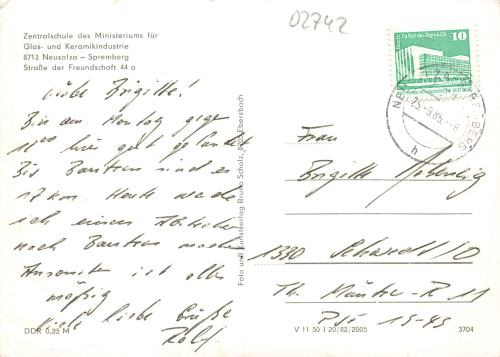 02742
Zentralschule des Ministeriums für
Glas- und Keramikindustrie
8713 Neusalza – Spremberg
Straße der Freundschaft 44 a
Liebe Brigitte!
Bin am Montag gegen
11 00 hier gut gelandet
Bis Bautzen sind es
17 km. Heute werde
ich einen Abstecher
nach Bautzen machen
Ansonsten ist alles
mäßig
Viele liebe Grüße
Rolf
DDR 0,25 M
Foto und Kunstverlag Bruno Scholz, 8705 Ebersbach
Palast der Republik
10
DDR
25.-9.85.-8
h
Frau
Brigitte
1330 Schwedt/O
Th. Müntzer-R 11
PSF 15-43
V 11 50 J 20/82/2005
3704